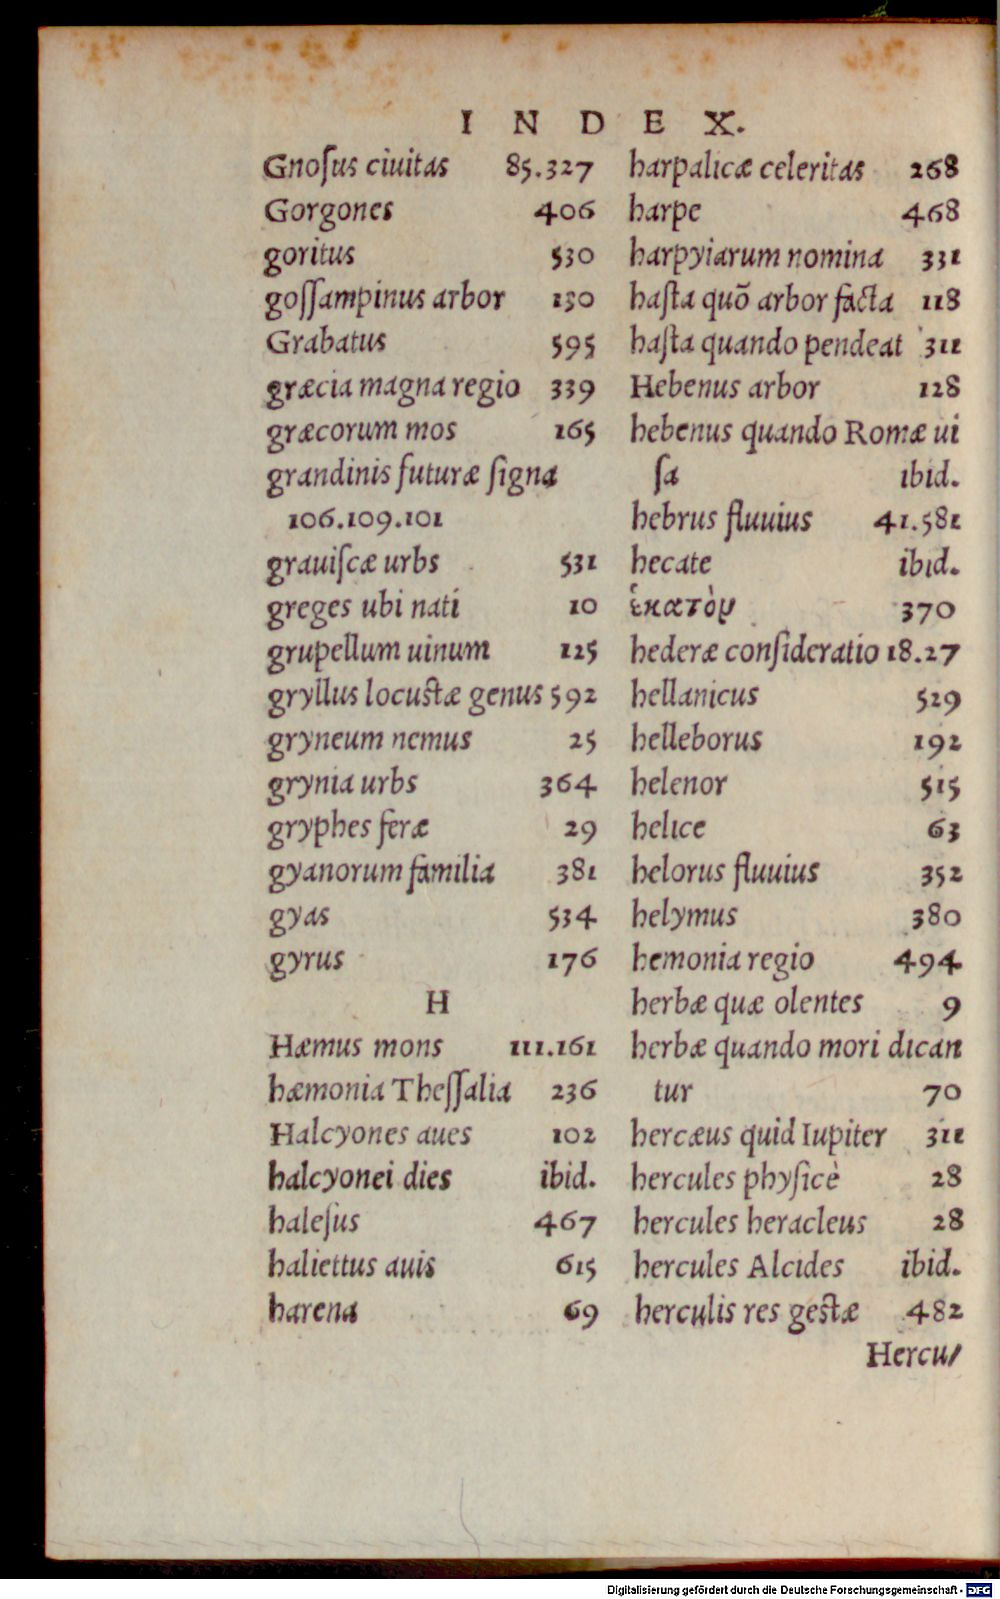 INDEX.
Gnoſus ciuitas 85.327
Gorgones 406
goritus 530
goſſampinus arbor 130
Grabatus 595
græcia magna regio 339
græcorum mos 165
grandinis futuræ ſigna
106.109.101
grauiſcæ urbs 531
greges ubi nati 10
grupellum uinum 125
gryllus locustæ genus 592
gryneum nemus 25
grynia urbs 364
gryphes feræ 29
gyanorum familia 381
gyas 534
gyrus 176
H
Hæmus mons 111.161
hæmonia Theſſalia 236
Halcyones aues 102
halcyonei dies ibid.
haleſus 467
haliettus auis 615
harena 69
harpalicæ celeritas 268
harpe 468
harpyiarum nomina 331
haſta quõ arbor facta 118
haſta quando pendeat 311
Hebenus arbor 128
hebenus quando Romæ ui
ſa ibid.
hebrus fluuius 41.581
hecate ibid.
ἑκατὸν 370
hederæ conſideratio 18.27
hellanicus 529
helleborus 192
helenor 515
helice 63
helorus fluuius 352
helymus 380
hemonia regio 494
herbæ quæ olentes 9
herbæ quando mori dican
tur 70
hercæus quid Iupiter 311
hercules phyſicè 28
hercules heracleus 28
hercules Alcides ibid.
herculis res gestæ 482
Hercu/
Digitalisierung gefördert durch die Deutsche Forschungsgemeinschaft - DFG